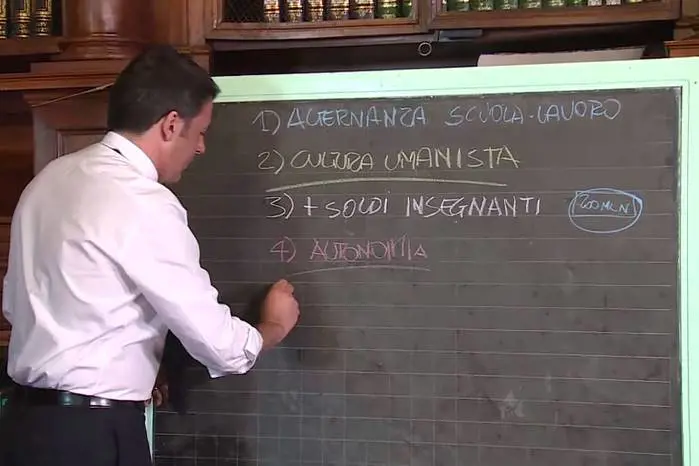 1) ALTERNANZA SCUOLA-LAVORO
2) CULTURA UMANISTA
3) + SOLDI INSEGNANTI 200 MLN
4) AUTONOMIA